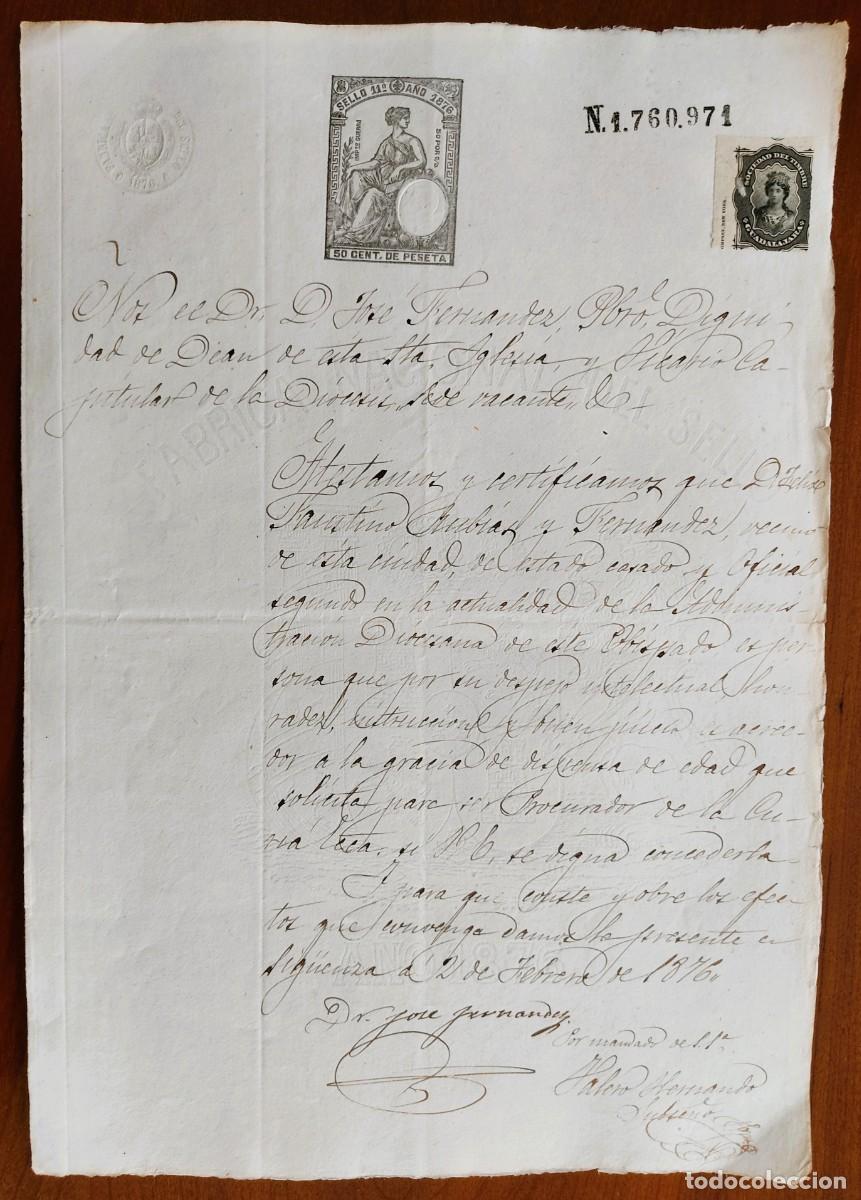 SELLO 11º AÑO 1876
50 CENT. DE PESETA
N.1.760.971
SOCIEDAD DEL TIMBRE
GUADALAJARA
Nos el Dr. D. José Fernandez, Pbro. Digni-
dad de Dean de esta Sta. Iglesia, y Vicario Ca-
pitular de la Diócesis, "Sede vacante" &-
Atestamos y certificamos que D. Felix
Faustino Rubias y Fernandez, vecino
de esta ciudad, de estado casado y Oficial
segundo en la actualidad de la Adminis-
tración Diocesana de este Obispado es per-
sona que por su despejo intelectual, hon-
radez, instruccion y buen juicio es acree-
dor a la gracia de dispensa de edad que
solicita para ser Procurador de la Cu-
ria Ecca. si V. E. se digna concederla-
Y para que conste y obre los efec-
tos que convenga damos la presente en
Sigüenza á 2 de Febrero de 1876.
Dr. Jose Fernandez
Por mandado de S. Sª.
Valero Hernando
todocoleccion